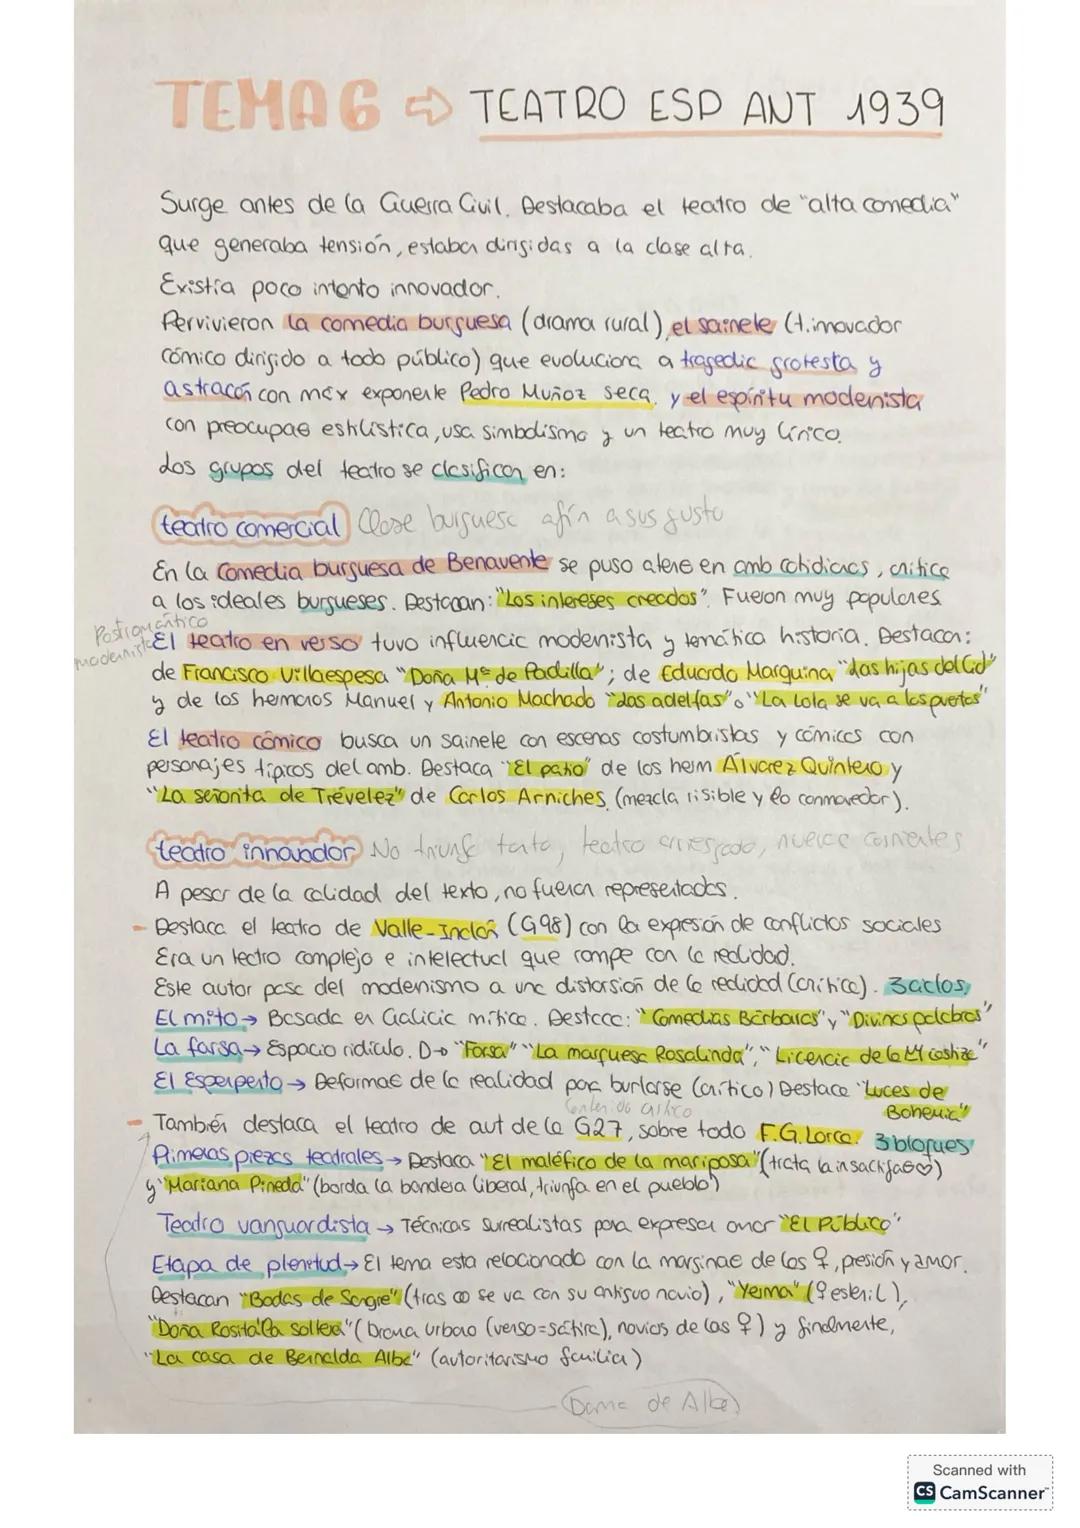 TEMA 6 ⇨ TEATRO ESP ANT 1939
Surge antes de la Guerra Civil. Destacaba el teatro de "alta comedia"
que generaba tensión, estaban dirigidas a la clase alta.
Existía poco intento innovador.
Pervivieron la comedia burguesa (drama rural), el sainete (t. innovador
cómico dirigido a todo público) que evoluciona a tragedia grotesta y
astracán con máx exponente Pedro Muñoz seca, y el espíritu modenista
con preocupa⊖ estilística, usa simbolismo y un teatro muy lírico.
Los grupos del teatro se clasifican en:
teatro comercial Clase burguesa afín a sus gusto
En la comedia burguesa de Benavente se puso atene en amb cotidianas, critica
a los ideales burgueses. Destacan: "Los intereses creados". Fueron muy populares
Postromántico
modernista
El teatro en verso tuvo influencia modenista y temática historia. Destacan:
de Francisco Villaespesa "Doña Mª de Padilla"; de Eduardo Marquina "Las hijas del Cid"
y de los hermanos Manuel y Antonio Machado "Las adelfas" o "La Lola se va a los puertos"
El teatro cómico busca un sainete con escenas costumbristas y cómicas con
personajes típicos del amb. Destaca "El patio" de los herm Álvarez Quintero y
"La señorita de Trévelez" de Carlos Arniches (mezcla risible y lo conmovedor).
teatro innovador No triunfa tanto, teatro arriesgado, nuevas corrientes
A pesar de la calidad del texto, no fueron representados.
- Destaca el teatro de Valle-Inclán (G98) con la expresión de conflictos sociales
Era un teatro complejo e intelectual que rompe con la realidad.
Este autor pasa del modenismo a una distorsión de la realidad (crítica). 3 ciclos,
El mito → Basada en Galicia mítica. Destaca: "Comedias Bárbaras" y "Divinas palabras"
La farsa → Espacio ridículo. D→ "Farsa" "La marquesa Rosalinda", "Licencia de la
El Esperpento → Deforma⊖ de la realidad para burlarse (crítico) Destaca "Luces de
Bohemia"
Contenido crítico
- También destaca el teatro de aut de la G27, sobre todo F.G.Lorca. 3 bloques
Primeras piezas teatrales → Destaca "El maléfico de la mariposa" (trata la insactifa⊖ ♡)
y "Mariana Pineda" (borda la bandera liberal, triunfa en el pueblo)
Teatro vanguardista → Técnicas surrealistas para expresar amor "El Público"
Etapa de plenitud → El tema esta relacionado con la margina⊖ de las ♀, presión y amor.
Destacan "Bodas de Sangre" (tras ∞ se va con su antiguo novio), "Yerma" (♀ esteril),
"Doña Rosita la soltera" (Drama urbano (verso=sátira), novios de las ♀) y finalmente,
"La casa de Bernalda Alba" (autoritarismo familia)
Dama de Alba
Scanned with
CS CamScanner